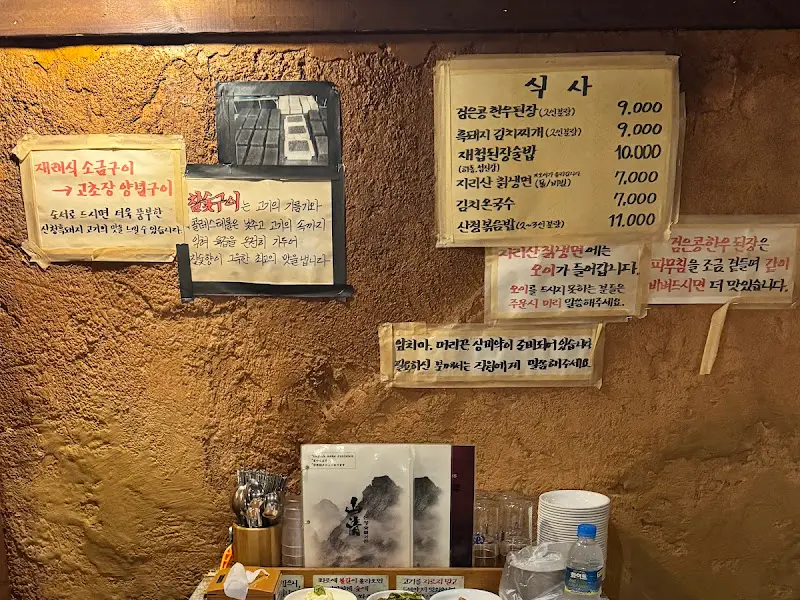 재래식 소금구이
→ 고초장 양념구이
소서로 드시면 더욱 풍부한
산청흑돼지 고기의 맛을 느낄수 있습니다
참숯구이는 고기의 기름기와
콜레스테롤은 낮추고 고기의 속까지
익혀 육즙을 온전히 가두어
참숯향이 그윽한 최고의 맛을 냅니다
식 사
검은콩 한우된장 (2인분량) 9.000
흑돼지 김치찌개 (2인분량) 9.000
재첩된장술밥 10.000
지리산 칡냉면 (물/비빔) 7,000
김치온국수 7,000
산청볶음밥 (2~3인분량) 11.000
지리산칡냉면에는
오이가 들어갑니다.
오이를 드시지 못하는 분들은
주문시 미리 말씀해주세요.
검은콩한우 된장은
파무침을 조금 곁들여 같이
비벼드시면 더 맛있습니다.
입치아, 머리끈 상비약이 준비되어있습니다
필요하신 분께서는 직원에게 말씀해주세요.